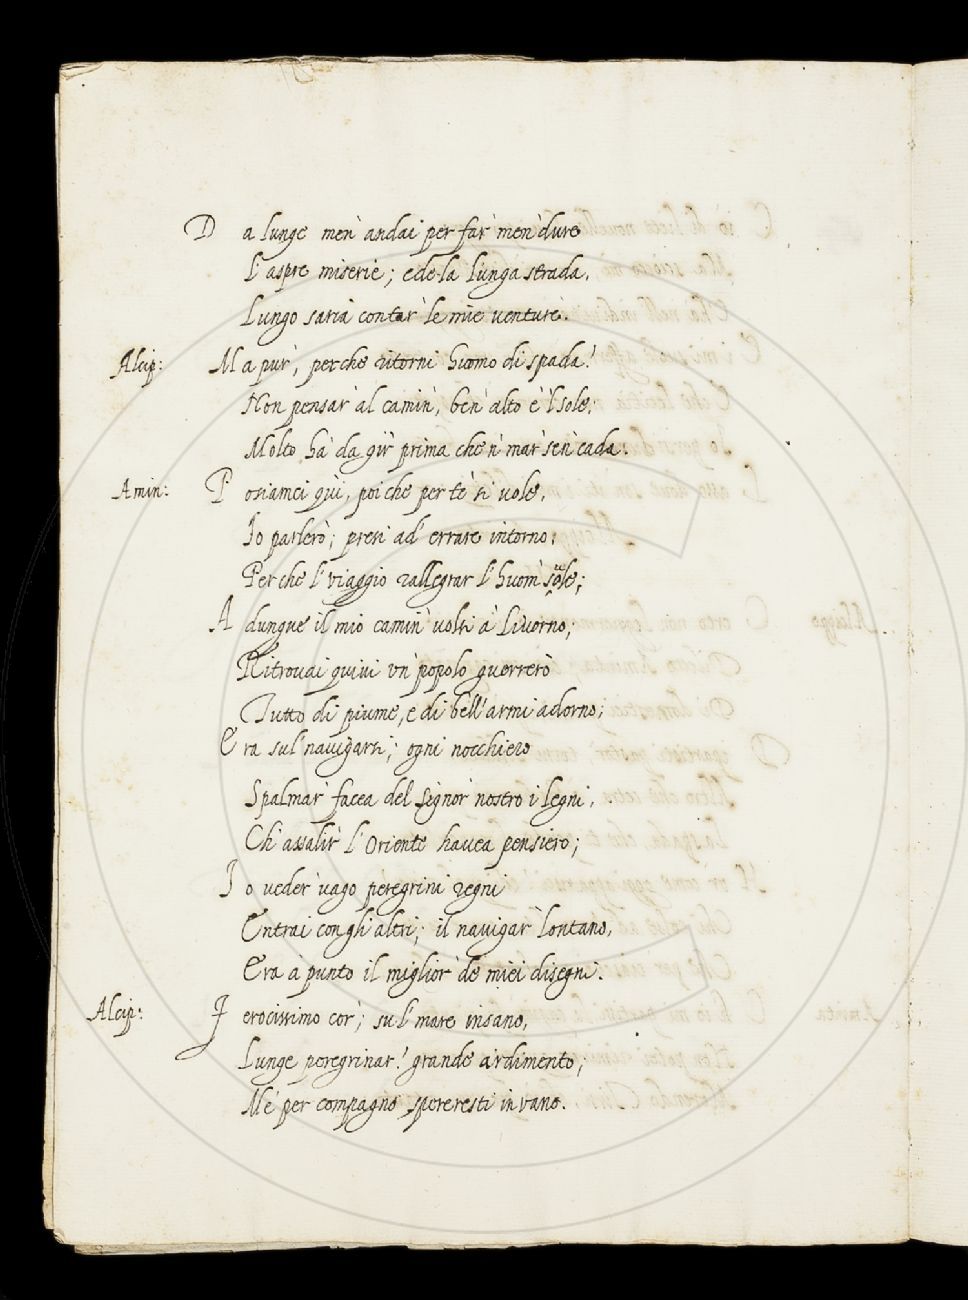 Da lunge men' andai per far' men' dure
L'aspre miserie; e de la lunga strada,
Lungo saria contar' le mie venture.
Alcip: Ma pur', perche ritorni huomo di spada?
Non pensar' al camin', ben' alto è 'l sole;
Molto ha da gir' prima che 'n mar' sen' cada.
Amin: Posiamci qui, poi che per te si vole,
Io parlerò; presi ad' errare intorno;
Perche l' viaggio rallegrar l' huom' suole;
Adungue il mio camin' volsi à Livorno;
Ritrovai quivi vn' popolo guerrero
Tutto di piume, e di bell' armi adorno;
Era sul' navigarsi; ogni nocchiero
Spalmar' facea del Signor' nostro i legni,
Ch' assalir' l' Oriente havea pensiero;
Io veder' vago peregrini regni
Entrai con gli altri; il navigar' lontano,
Era à punto il miglior' de miei disegni.
Alcip: Ferocissimo cor'; su l' mare insano,
Lunge peregrinar! grande ardimento;
Me per compagno spereresti in vano.